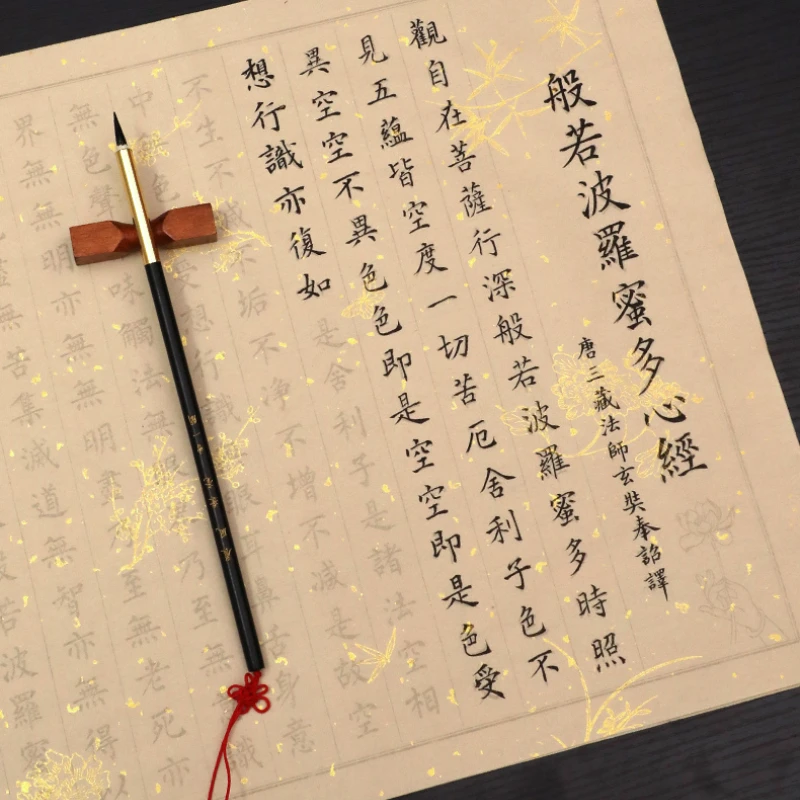 般若波羅蜜多心經
唐三藏法師玄奘奉詔譯
觀自在菩薩行深般若波羅蜜多時照
見五蘊皆空度一切苦厄舍利子色不
異空空不異色色即是空空即是色受
想行識亦復如是舍利子是諸法空相
不生不滅不垢不淨不增不減是故空
中無色受想行識無眼耳鼻舌身意
無色聲味觸法無乃至無識
界無無明亦無無明盡至無老死亦
盡無苦集滅道無智亦無得以
般若波羅蜜